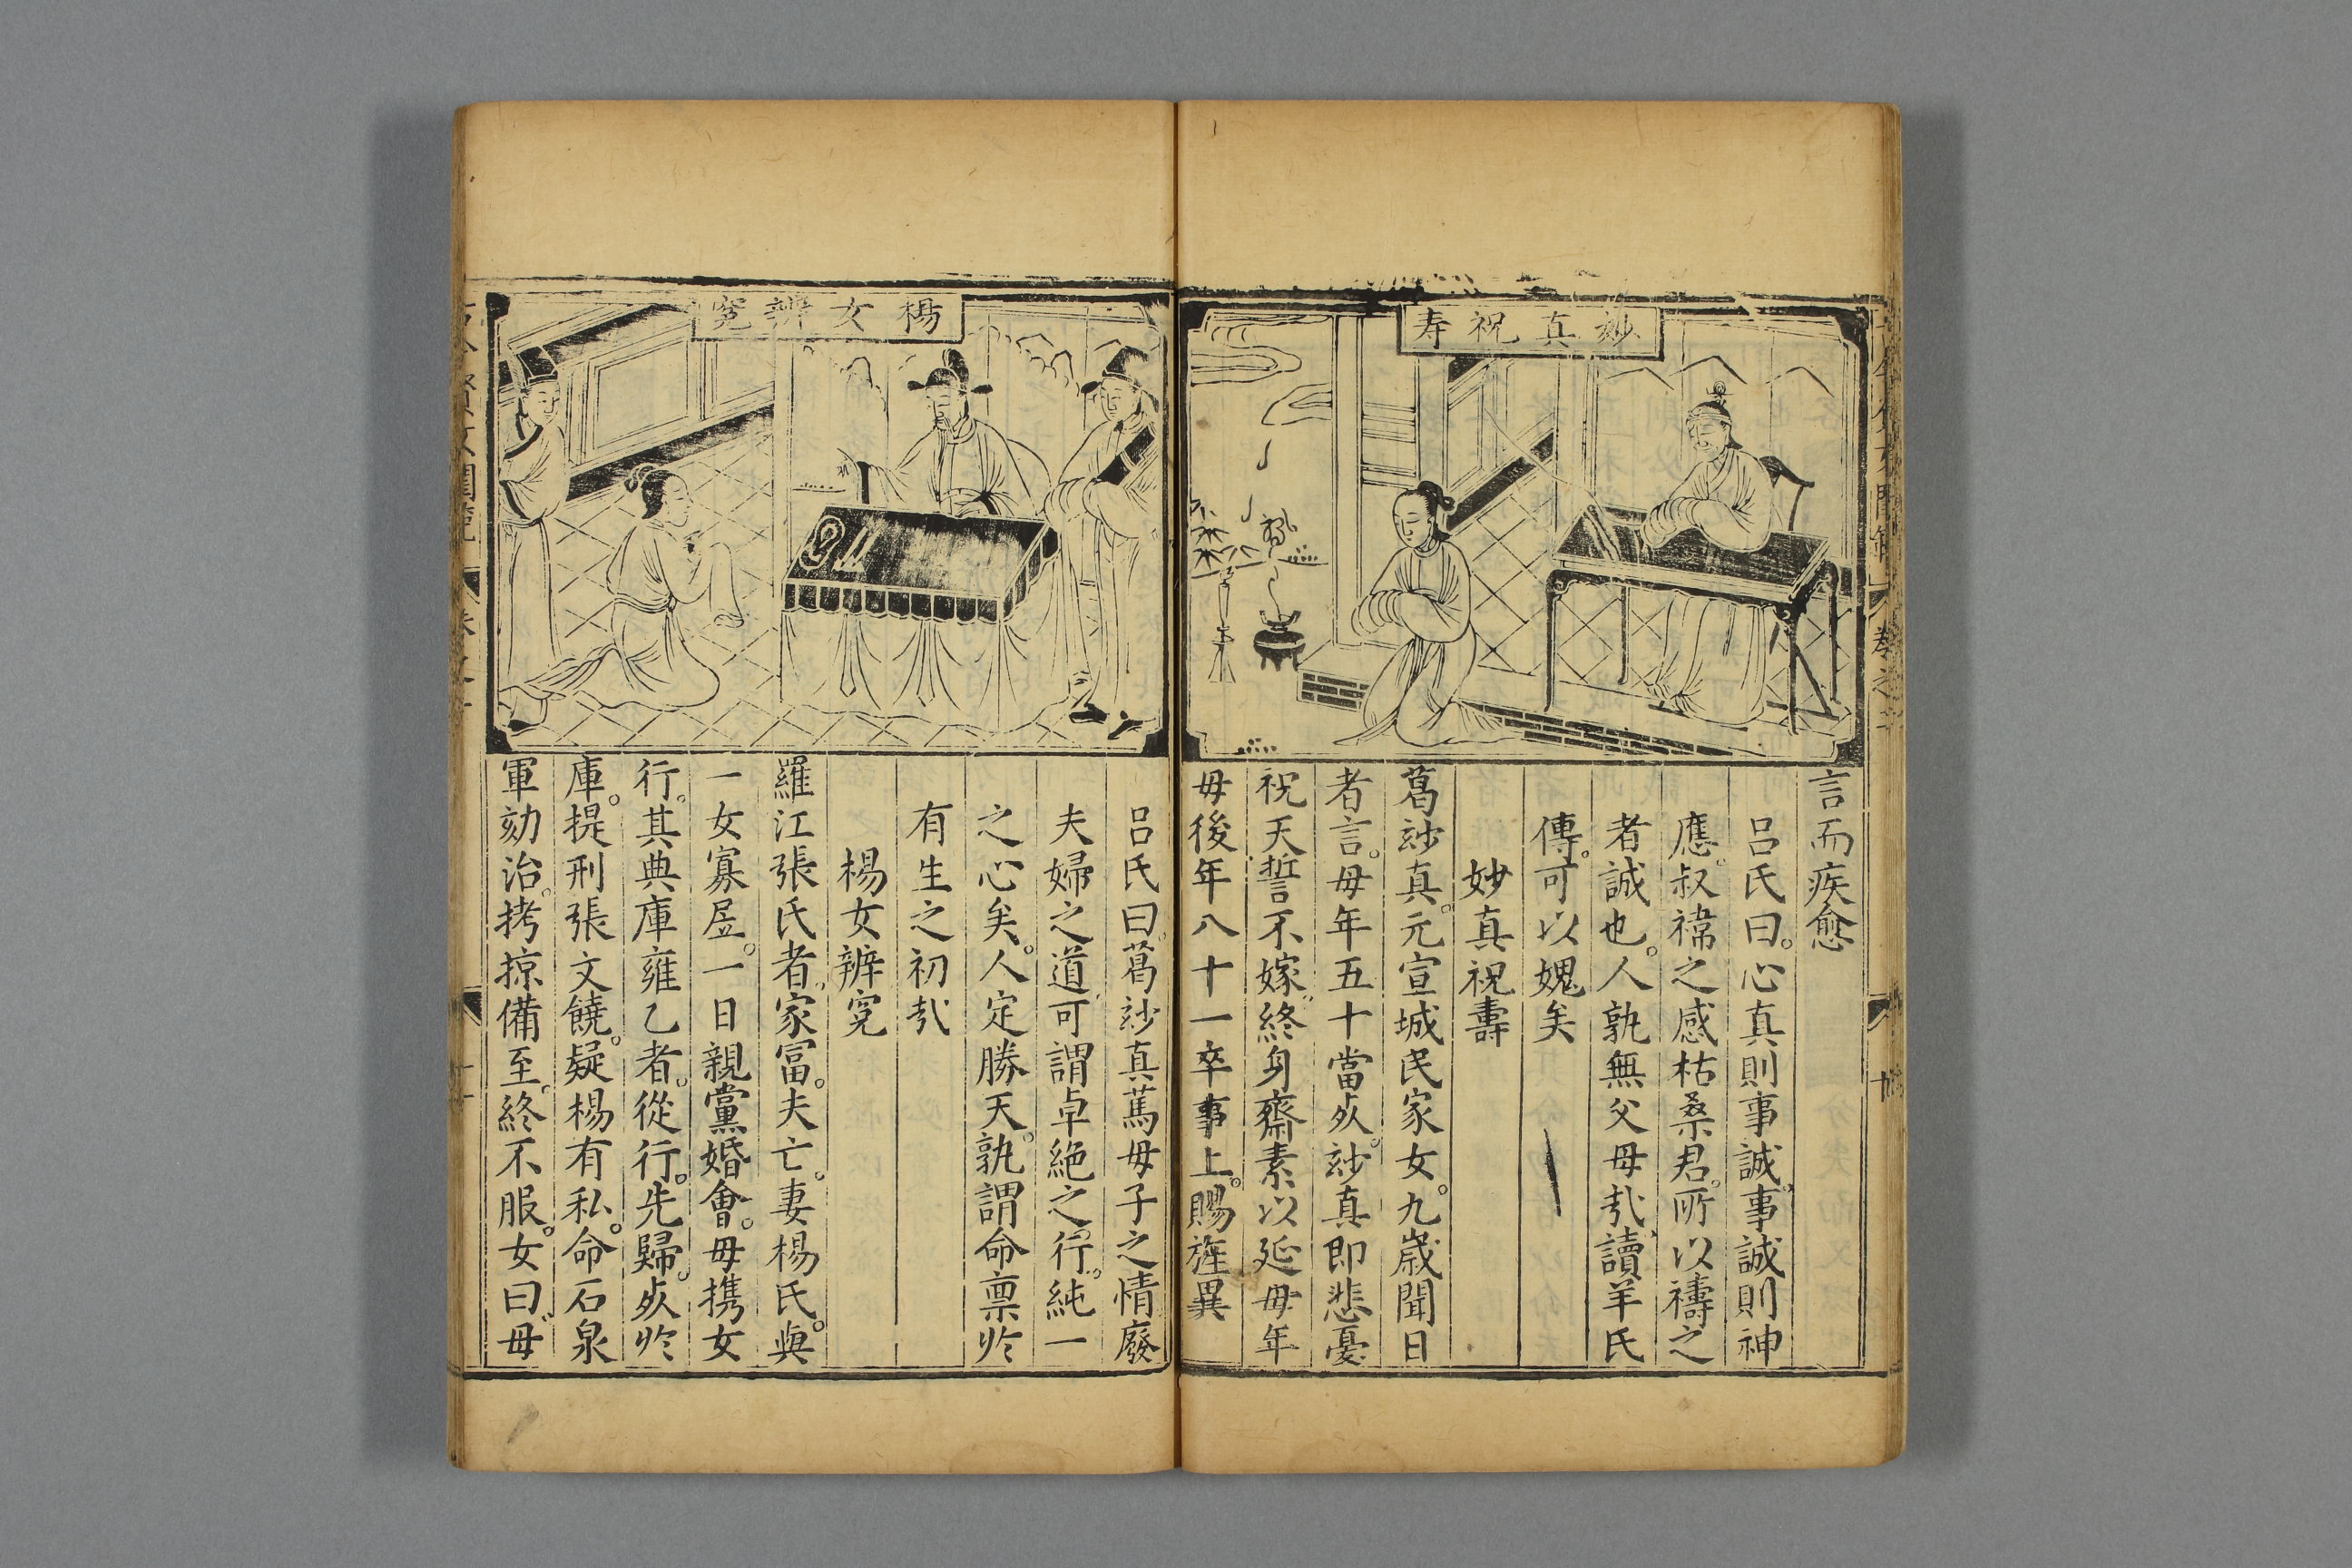 玅真祝寿
言而疾愈
呂氏曰。心真則事誠。事誠則神
應。叔禕之感枯桑君。所以禱之
者誠也。人孰無父母㢤。讀羊氏
傳。可以媿矣
妙真祝壽
葛玅真。元宣城民家女。九歲聞日
者言。母年五十當死。玅真即悲憂
祝天。誓不嫁。終身齋素以延母年
母後年八十一卒事上。賜旌異
楊女辨寃
呂氏曰。葛玅真篤母子之情廢
夫婦之道。可謂卓絶之行。純一
之心矣。人定勝天。孰謂命禀於
有生之初㢤
楊女辨寃
羅江張氏者。家冨。夫亡。妻楊氏。與
一女寡居。一日親黨婚會。母携女
行。其典庫雍乙者。從行。先歸。死於
庫。提刑張文饒。疑楊有私。命石泉
軍劾治。拷掠備至。終不服。女曰。母